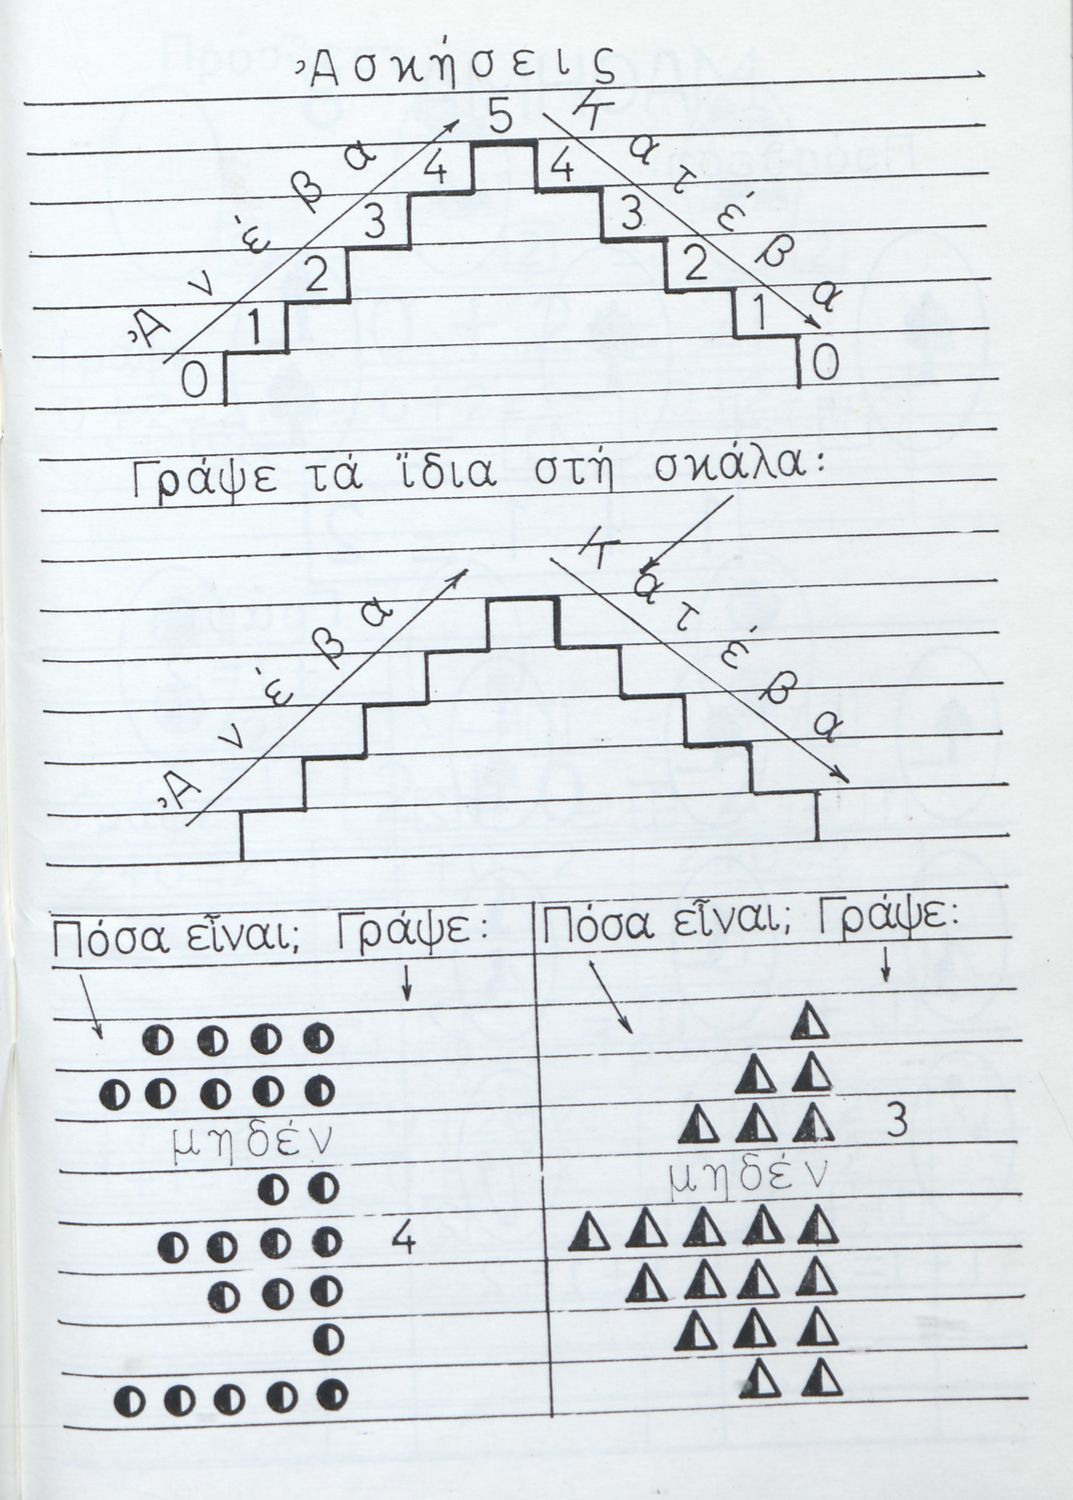 Ἀσκήσεις
5
4 4
3 3
2 2
1 1
0 0
Ἀνέβα
Κατέβα
Γράψε τά ἴδια στή σκάλα:
Ἀνέβα
Κατέβα
Πόσα εἶναι; Γράψε:
μηδέν
4
Πόσα εἶναι; Γράψε:
3
μηδέν